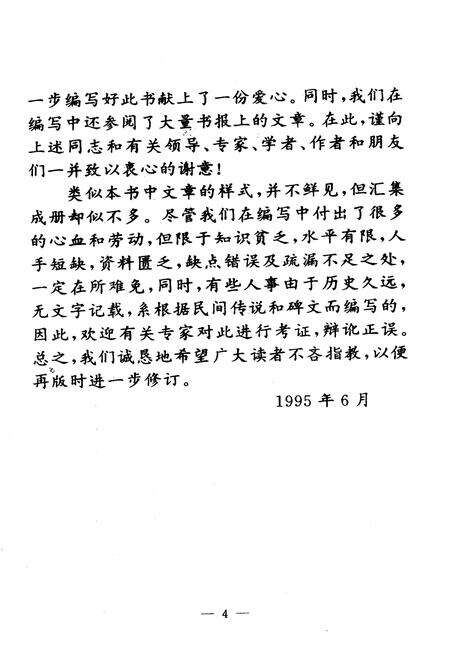 一步编写好此书献上了一份爱心。同时,我们在
编写中还参阅了大量书报上的文章。在此,谨向
上述同志和有关领导、专家、学者、作者和朋友
们一并致以衷心的谢意!
类似本书中文章的样式,并不鲜见,但汇集
成册却似不多。尽管我们在编写中付出了很多
的心血和劳动,但限于知识贫乏,水平有限,人
手短缺,资料匮乏,缺点错误及疏漏不足之处,
一定在所难免,同时,有些人事由于历史久远,
无文字记载,系根据民间传说和碑文而编写的,
因此,欢迎有关专家对此进行考证,辩论正误。
总之,我们诚恳地希望广大读者不吝指教,以便
再版时进一步修订。
1995 年 6 月
— 4 —